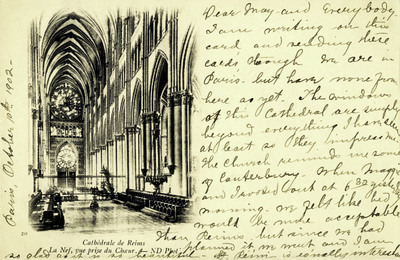 Paris, October 8th, 1902 –
Dear May and Everybody.
I am writing on this
card and sending these
cards though we are in
Paris – but have none from
here as yet. The windows
of this Cathedral are simply
beyond everything I have seen
at least so they impress me.
The Church reminds me some
of Canterbury. When Mag
and I arrived out at 6.30 yesterday
morning we felt like bed
would be more acceptable
than Reims but since we had
planned it, we went and I am
so glad as it is so beautiful. Reims is
Cathédrale de Reims
La Nef, vue prise du Chœur. — ND Phot.